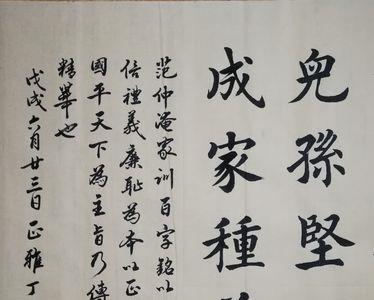 兒孫堅
成家種
范仲淹家訓百字銘以
信禮義廉恥為本以正
國平天下為主旨乃傳
精華也
戊戌六月廿三日正雅丁